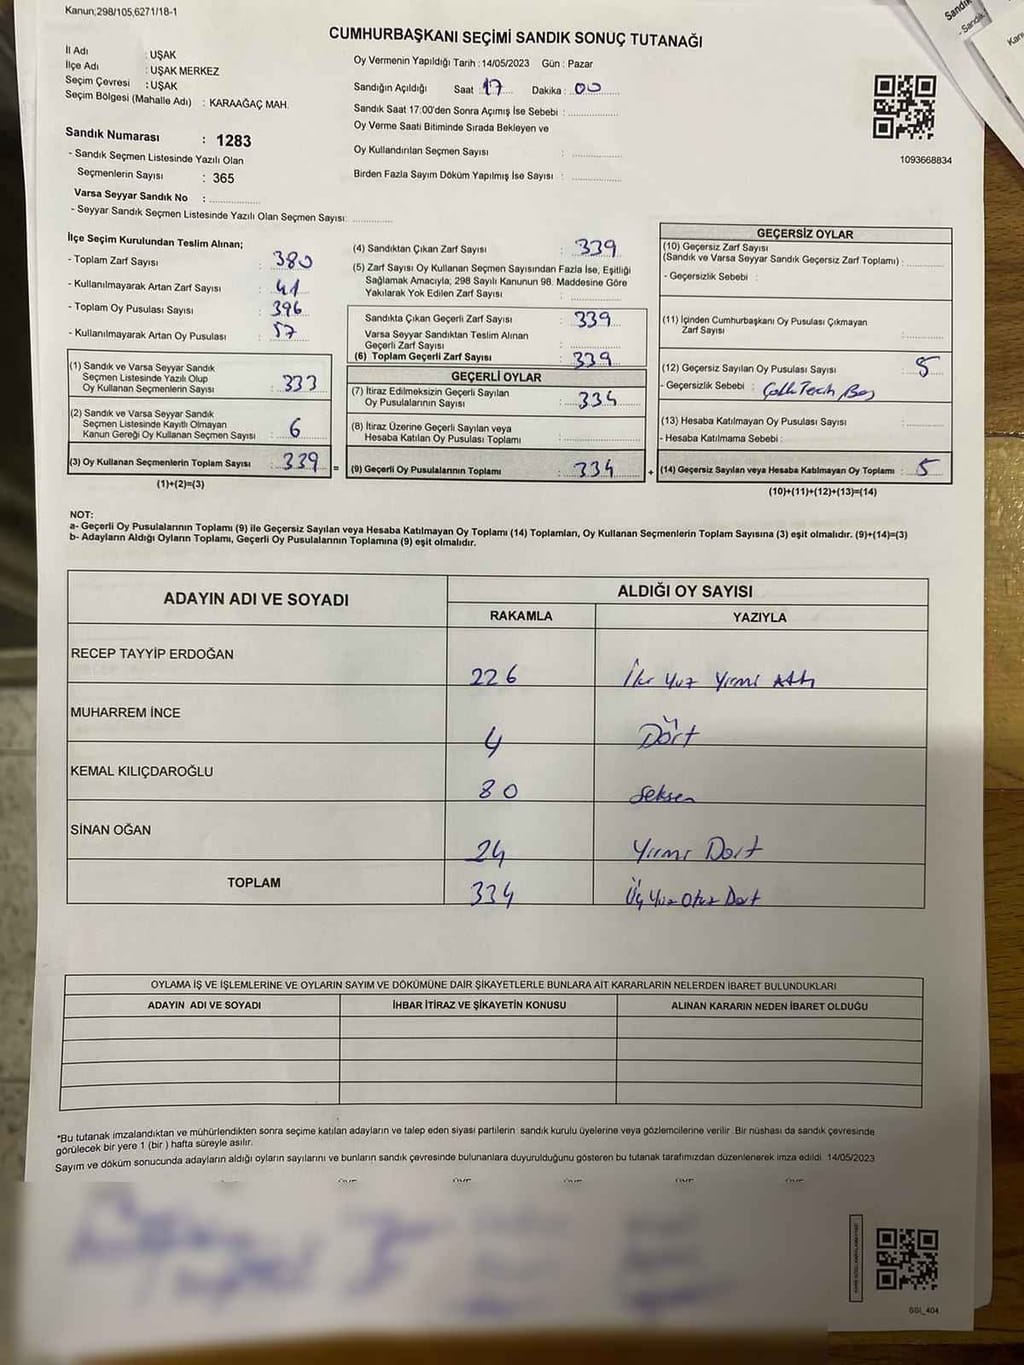 Kanun;298/105,6271/18-1
CUMHURBAŞKANI SEÇİMİ SANDIK SONUÇ TUTANAĞI
İl Adı : UŞAK
İlçe Adı : UŞAK MERKEZ
Seçim Çevresi : UŞAK
Seçim Bölgesi (Mahalle Adı) : KARAAĞAÇ MAH.
Sandık Numarası : 1283
- Sandık Seçmen Listesinde Yazılı Olan
Seçmenlerin Sayısı : 365
Varsa Seyyar Sandık No :
- Seyyar Sandık Seçmen Listesinde Yazılı Olan Seçmen Sayısı:
Oy Vermenin Yapıldığı Tarih : 14/05/2023 Gün : Pazar
Sandığın Açıldığı Saat 17 Dakika : 00
Sandık Saat 17:00'den Sonra Açımış İse Sebebi :
Oy Verme Saati Bitiminde Sırada Bekleyen ve
Oy Kullandırılan Seçmen Sayısı :
Birden Fazla Sayım Döküm Yapılmış İse Sayısı :
1093668834
İlçe Seçim Kurulundan Teslim Alınan;
- Toplam Zarf Sayısı : 380
- Kullanılmayarak Artan Zarf Sayısı : 41
- Toplam Oy Pusulası Sayısı : 396
- Kullanılmayarak Artan Oy Pusulası : 57
(1) Sandık ve Varsa Seyyar Sandık
Seçmen Listesinde Yazılı Olup
Oy Kullanan Seçmenlerin Sayısı : 333
(2) Sandık ve Varsa Seyyar Sandık
Seçmen Listesinde Kayıtlı Olmayan
Kanun Gereği Oy Kullanan Seçmen Sayısı : 6
(3) Oy Kullanan Seçmenlerin Toplam Sayısı : 339 =
(1)+(2)=(3)
(4) Sandıktan Çıkan Zarf Sayısı : 339
(5) Zarf Sayısı Oy Kullanan Seçmen Sayısından Fazla İse, Eşitliği
Sağlamak Amacıyla, 298 Sayılı Kanunun 98. Maddesine Göre
Yakılarak Yok Edilen Zarf Sayısı :
Sandıkta Çıkan Geçerli Zarf Sayısı : 339
Varsa Seyyar Sandıktan Teslim Alınan
Geçerli Zarf Sayısı :
(6) Toplam Geçerli Zarf Sayısı : 339
GEÇERLİ OYLAR
(7) İtiraz Edilmeksizin Geçerli Sayılan
Oy Pusulalarının Sayısı : 334
(8) İtiraz Üzerine Geçerli Sayılan veya
Hesaba Katılan Oy Pusulası Toplamı :
(9) Geçerli Oy Pusulalarının Toplamı : 334 +
GEÇERSİZ OYLAR
(10) Geçersiz Zarf Sayısı
(Sandık ve Varsa Seyyar Sandık Geçersiz Zarf Toplamı) :
- Geçersizlik Sebebi :
(11) İçinden Cumhurbaşkanı Oy Pusulası Çıkmayan
Zarf Sayısı :
(12) Geçersiz Sayılan Oy Pusulası Sayısı : 5
- Geçersizlik Sebebi :
(13) Hesaba Katılmayan Oy Pusulası Sayısı :
- Hesaba Katılmama Sebebi :
(14) Geçersiz Sayılan veya Hesaba Katılmayan Oy Toplamı : 5
(10)+(11)+(12)+(13)=(14)
NOT:
a- Geçerli Oy Pusulalarının Toplamı (9) ile Geçersiz Sayılan veya Hesaba Katılmayan Oy Toplamı (14) Toplamları, Oy Kullanan Seçmenlerin Toplam Sayısına (3) eşit olmalıdır. (9)+(14)=(3)
b- Adayların Aldığı Oyların Toplamı, Geçerli Oy Pusulalarının Toplamına (9) eşit olmalıdır.
ADAYIN ADI VE SOYADI ALDIĞI OY SAYISI
RAKAMLA YAZIYLA
RECEP TAYYİP ERDOĞAN 226 İki Yüz Yirmi Altı
MUHARREM İNCE 4 Dört
KEMAL KILIÇDAROĞLU 80 Seksen
SİNAN OĞAN 24 Yirmi Dört
TOPLAM 334 Üç Yüz Otuz Dört
OYLAMA İŞ VE İŞLEMLERİNE VE OYLARIN SAYIM VE DÖKÜMÜNE DAİR ŞİKAYETLERLE BUNLARA AİT KARARLARIN NELERDEN İBARET BULUNDUKLARI
ADAYIN ADI VE SOYADI İHBAR İTİRAZ VE ŞİKAYETİN KONUSU ALINAN KARARIN NEDEN İBARET OLDUĞU
*Bu tutanak imzalandıktan ve mühürlendikten sonra seçime katılan adayların ve talep eden siyasi partilerin sandık kurulu üyelerine veya gözlemcilerine verilir. Bir nüshası da sandık çevresinde
görülecek bir yere 1 (bir ) hafta süreyle asılır.
Sayım ve döküm sonucunda adayların aldığı oyların sayılarını ve bunların sandık çevresinde bulunanlara duyurulduğunu gösteren bu tutanak tarafımızdan düzenlenerek imza edildi. 14/05/2023
SSI_404